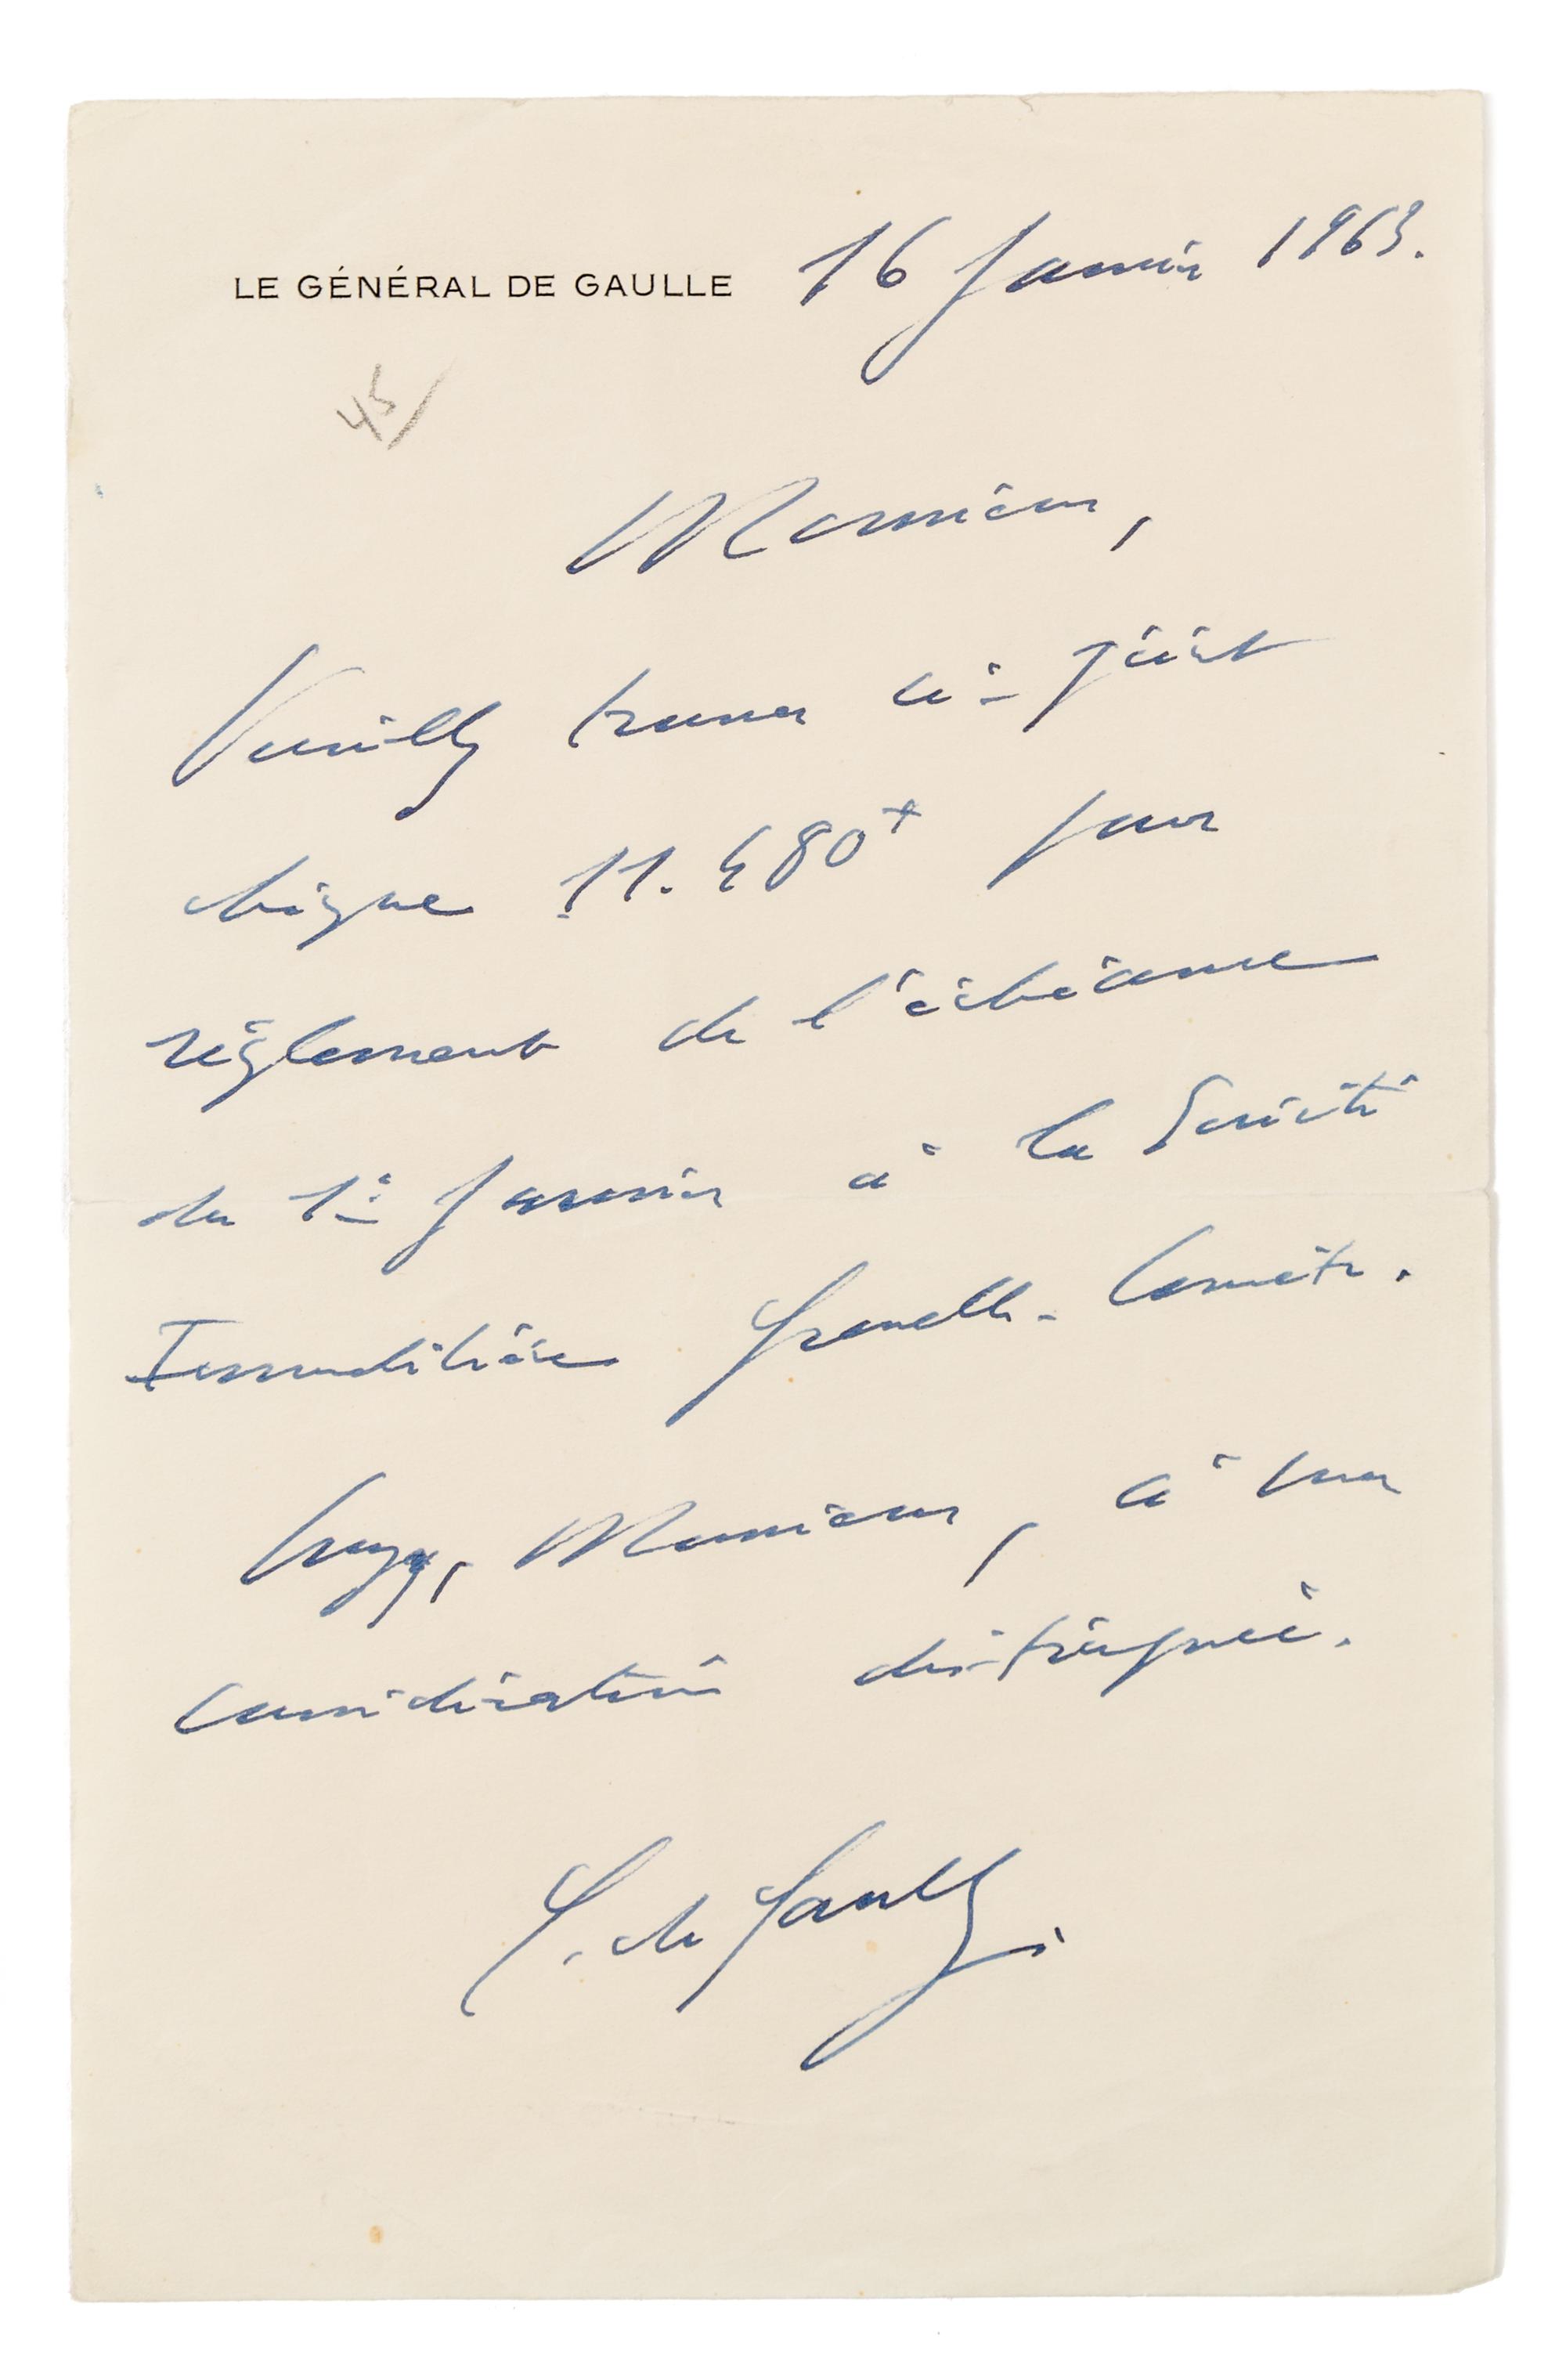 LE GÉNÉRAL DE GAULLE 16 Janvier 1963.
45/
Monsieur,
Veuillez trouver ci-joint
chèque 11.480 F pour
règlement de l'échéance
du 1er Janvier à la Société
Immobilière Grenelle-
Croyez, Monsieur, à ma
considération distinguée.
C. de Gaulle